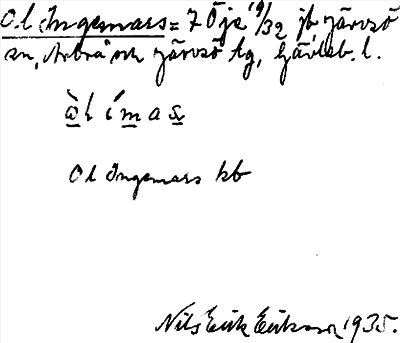 Ol Ingemars = 7 Öje 19/32 jb Järvsö
sn, Arbrå och Järvsö tg, Gävleb. l.
ὰl í m a s
Ol Ingemars kb
Nils Erik Eriksson 1935.